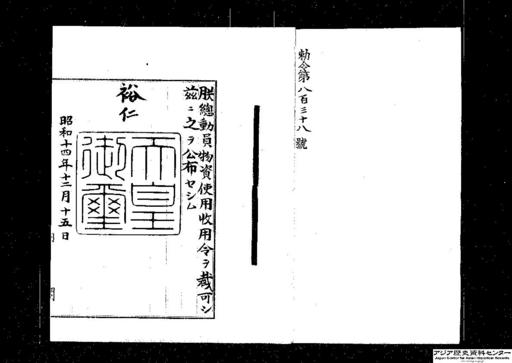 勅令第八百三十八號
朕總動員物資使用收用令ヲ裁可シ
茲ニ之ヲ公布セシム
裕仁
天皇
御璽
昭和十四年十二月十五日
アジア歴史資料センター
Japan Center for Asian Historical Records